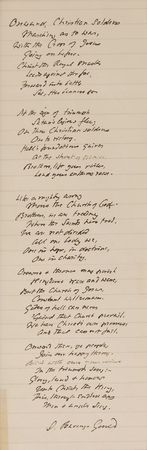 Onward, Christian soldiers
Marching as to war,
With the Cross of Jesus
Going on before.
Christ the Royal Master
Leads against the foe,
Forward into battle
See, His banners go.
At the sign of triumph
Satan's legions flee,
On then Christian soldiers
On to victory.
Hell's foundations quiver
At the shout of praise,
Brothers, lift your voices,
Loud your anthems raise.
Like a mighty army
Moves the Church of God,
Brothers, we are treading
Where the Saints have trod,
We are not divided
All one body we,
One in hope, in doctrine,
One in charity.
Crowns & thrones may perish
Kingdoms rise and wane,
But the Church of Jesus
Constant will remain.
Gates of hell can never
'Gainst that Church prevail.
We have Christ's own promise
And that cannot fail.
Onward then, ye people,
Join our happy throng.
Blend with ours your voices
In the triumph song:
Glory, laud & honour
Unto Christ, the King,
This, through endless ages
Men & angels sing.
S. Baring-Gould